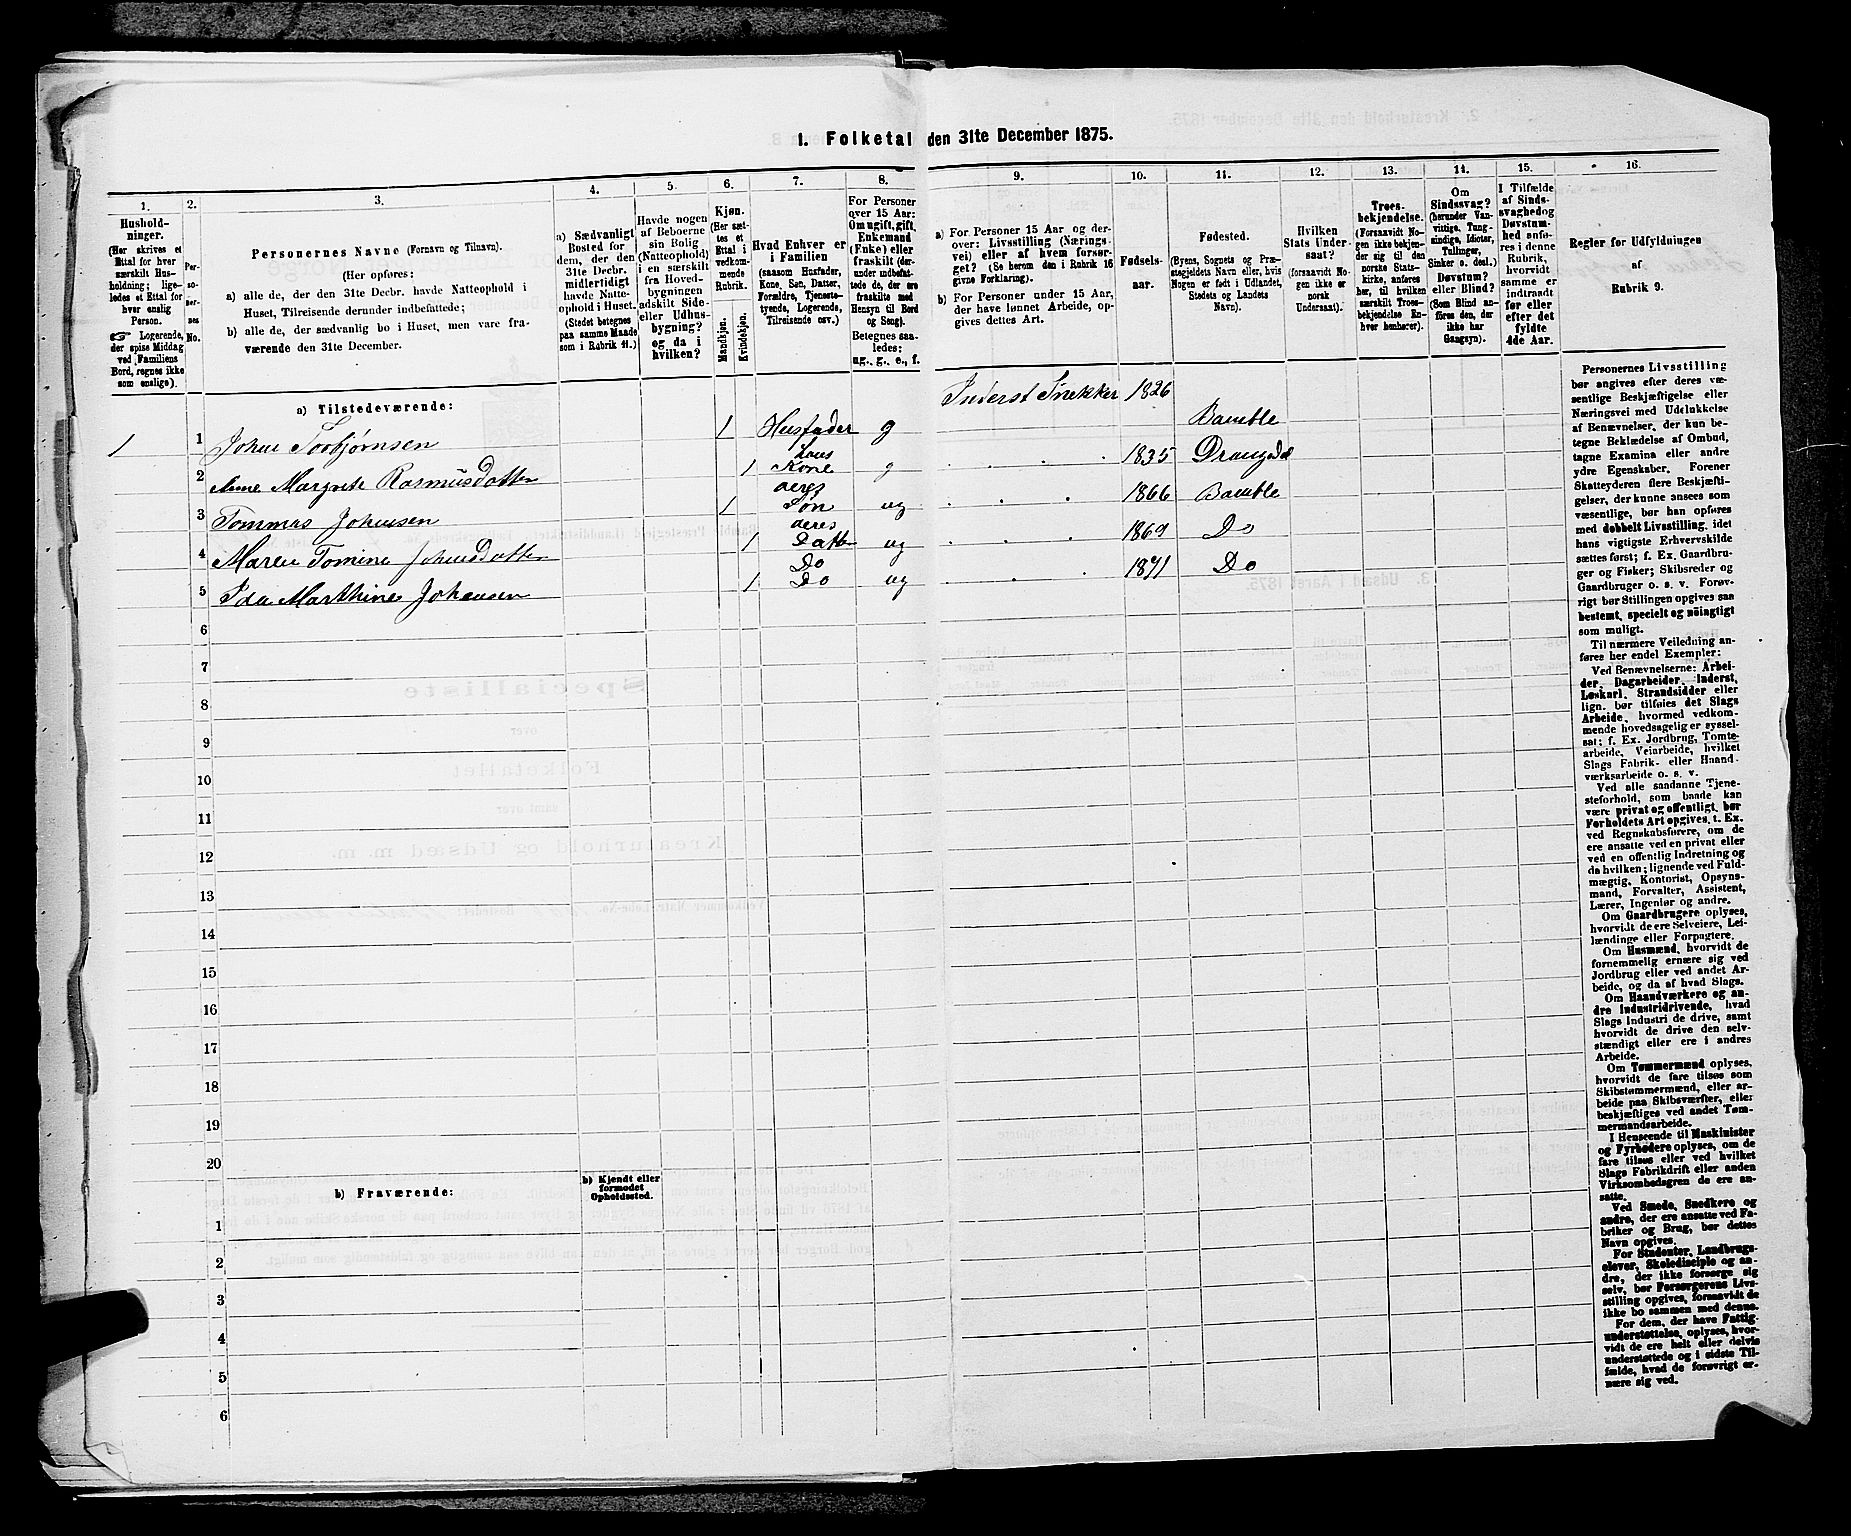 1. Folketal den 31te December 1875.
1. 2. 3. 4. 5. 6. 7. 8. 9. 10. 11. 12. 13. 14. 15. 16.
Hushold-
ninger.
(Her skrives et
Ettal for hver
særskilt Hus-
holdning; lige-
ledes et Ettal for
hver enslig
Person.
Logerende,
der spise Middag
ved Familiens
Bord, regnes ikke
som enslige).
Per-
so-
ner-
nes
No.
Personernes Navne (Fornavn og Tilnavn).
(Her opføres:
a) alle de, der den 31te Decbr. havde Natteophold i
Huset, Tilreisende derunder indbefattede;
b) alle de, der sædvanlig bo i Huset, men vare fra-
værende den 31te December.
a) Sædvanligt
Bosted for
dem, der den
31te Decbr.
midlertidigt
havde Natte-
ophold i Huset.
(Stedet betegnes
paa samme Maade
som i Rubrik 11.)
Havde nogen
af Beboerne
sin Bolig
(Natteophold)
i en særskilt
fra Hoved-
bygningen
adskilt Side-
eller Udhus-
bygning?
og da i
hvilken?
Kjøn.
(Her sæt-
tes et
Ettal i
vedkom-
mende
Rubrik.
Mandkjøn.
Kvindekjøn.
Hvad Enhver er
i Familien
(saasom Husfader,
Kone, Søn, Datter,
Forældre, Tjeneste-
tyende, Logerende,
Tilreisende osv.)
For Personer
over 15 Aar:
Om ugift, gift,
Enkemand
(Enke) eller
fraskilt (der-
under indbefat-
tede de, der ere
fraskilte med
Hensyn til Bord
og Seng).
Betegnes saa-
ledes:
ug., g., e., f.
a) For Personer 15 Aar og der-
over: Livsstilling (Nærings-
vei) eller af hvem forsør-
get? (Se herom den i Rubrik 16
givne Forklaring).
b) For Personer under 15 Aar,
der have lønnet Arbeide, op-
gives dettes Art.
Fødsels-
aar.
Fødested.
(Byens, Sognets og Præ-
stegjeldets Navn eller, hvis
Nogen er født i Udlandet,
Stedets og Landets
Navn).
Hvilken
Stats Under-
saat?
(forsaavidt No-
gen ikke er
norsk
Undersaat).
Troes-
bekjendelse.
(Forsaavidt No-
gen ikke bekjen-
der sig til den
norske Stats-
kirke, anføres
her, til hvilken
særskilt Troes-
bekjendelse En-
hver henhører).
Om
Sindssvag?
(herunder Van-
vittige, Tung-
sindige, Idioter,
Tullinger,
Sinker o. desl.)
Døvstum?
eller Blind?
(Som Blind an-
føres den, der
ikke har
Gangsyn).
I Tilfælde
af Sinds-
svaghed og
Døvstum-
hed anfø-
res i denne
Rubrik,
hvorvidt
samme er
indtraadt
før eller
efter det
fyldte
4de Aar.
Regler for Udfyldningen
af
Rubrik 9.
a) Tilstedeværende:
1 1 Johan Torbjørnsen 1 Husfader g Inderst Snekker 1826 Bamble
2 Anne Margrete Rasmusdatter 1 hans Kone g 1835 Drangedal
3 Tommas Johansen 1 deres Søn ug 1866 Bamble
4 Maren Tomine Johansdatter 1 deres Datter ug 1869 Do
5 Ida Marthine Johansen 1 Do Do ug 1871 Do
6
7
8
9
10
11
12
13
14
15
16
17
18
19
20
b) Fraværende:
b) Kjendt eller
formodet
Opholdssted.
1
2
3
4
5
6
Personernes Livsstilling
bør angives efter deres væ-
sentlige Beskjæftigelse eller
Næringsvei med Udelukkelse
af Benævnelser, der kun be-
tegne Beklædelse af Ombud,
tagne Examina eller andre
ydre Egenskaber. Forener
Skatteyderen flere Beskjæfti-
gelser, der kunne ansees som
væsentlige, bør han opføres
med dobbelt Livsstilling, idet
hans vigtigste Erhvervskilde
sættes først; f. Ex. Gaardbru-
ger og Fisker; Skibsreder og
Gaardbruger o. s. v. Forøv-
rigt bør Stillingen opgives saa
bestemt, specielt og nøiagtigt
som muligt.
Til nærmere Veiledning an-
føres her endel Exempler:
Ved Benævnelserne: Arbei-
der, Dagarbeider, Inderst,
Løskarl, Strandsidder eller
lign. bør tilføies det Slags
Arbeide, hvormed vedkom-
mende hovedsagelig er syssel-
sat; f. Ex. Jordbrug, Tomte-
arbeide, Veiarbeide, hvilket
Slags Fabrik- eller Haand-
værksarbeide o. s. v.
Ved alle saadanne Tjene-
steforhold, som baade kan
være privat og offentligt, bør
Forholdets Art opgives, t. Ex.
ved Regnskabsførere, om de
ere ansatte ved en privat eller
ved en offentlig Indretning og
da hvilken; lignende ved Fuld-
mægtig, Kontorist, Opsyns-
mand, Forvalter, Assistent,
Lærer, Ingeniør og andre.
Om Gaardbrugere oplyses,
hvorvidt de ere Selveiere, Lei-
lændinge eller Forpagtere.
Om Husmænd, hvorvidt de
fornemmelig ernære sig ved
Jordbrug eller ved andet Ar-
beide, og da af hvad Slags.
Om Haandværkere og an-
dre Industridrivende, hvad
Slags Industri de drive, samt
hvorvidt de drive den selv-
stændigt eller ere i andres
Arbeide.
Om Tømmermænd oplyses,
hvorvidt de fare tilsøs som
Skibstømmermænd, eller ar-
beide paa Skibsværfter, eller
beskjæftiges ved andet Tøm-
mermandsarbeide.
I Henseende til Maskinister
og Fyrbødere oplyses, om de
fare tilsøs eller ved hvilket
Slags Fabrikdrift eller anden
Virksombedsgren de ere an-
satte.
Ved Smede, Snedkere og
andre, der ere ansatte ved Fa-
briker og Brug, bør dettes
Navn opgives.
For Studenter, Landbrugs-
elever, Skoledisciple og an-
dre, der ikke forsørge sig
selv, bør Forsørgerens Livs-
stilling opgives, forsaavidt de
ikke bo sammen med denne.
For dem, der have Fattig-
understøttelse, oplyses, hvor-
vidt de ere helt eller delvis
understøttede og i sidste Til-
fælde, hvad de forøvrigt er-
nære sig ved.